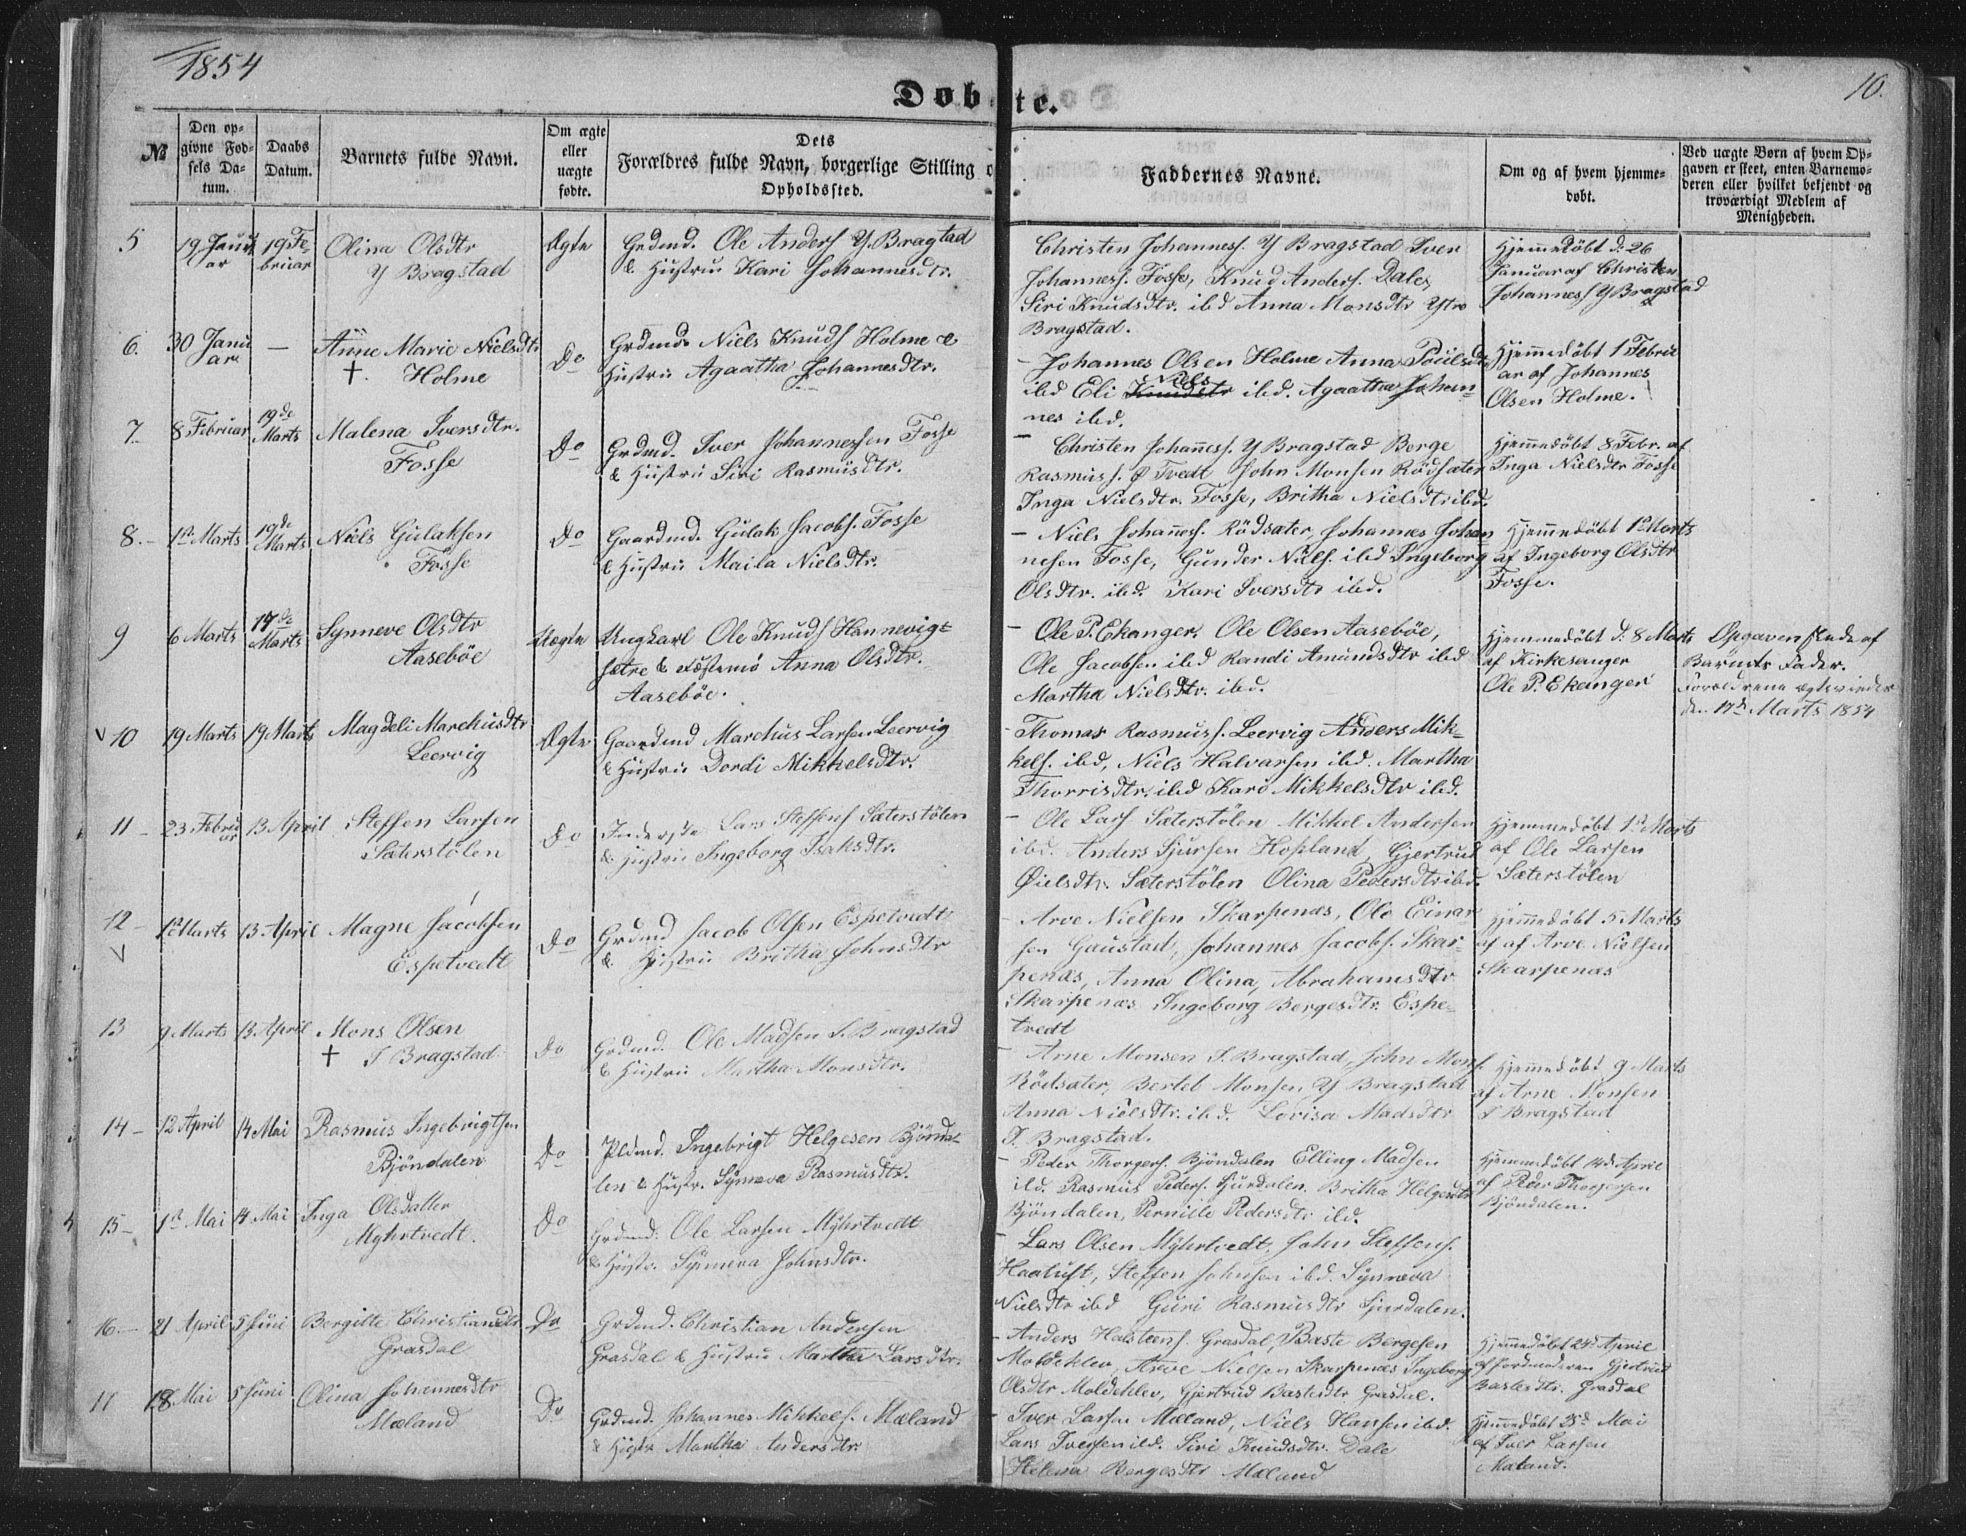 1854
10.
Døbte.
№
Den opgivne Fodsels Datum.
Daabs Datum.
Barnets fulde Navn.
Om ægte eller uægte fødte.
Dets Forældres fulde Navn, borgerlige Stilling og Opholdssted.
Faddernes Navne.
Om og af hvem hjemmedøbt.
Ved uægte Børn af hvem Opgaven er skeet, enten Barnemoderen eller hvilket bekjendt og troværdigt Medlem af Menigheden.
5
19 Januar
19 Februar
Olina Olsdtr
Y Bragstad
Ægte
Grdmd. Ole Anders Y. Bragstad
& Hustru Kari Johannesdtr.
Christen Johanness. Y Bragstad Iver
Johanness. Fosse, Knud Anders. Dale,
Siri Knudsdtr. ibd Anna Monsdtr Ytre
Bragstad.
Hjemmedöbt d. 26
Januar af Christen
Johanness Y Bragstad
6.
30 Januar
—
Anne Marie Nielsdtr
† Holme
Do
Grdmd. Niels Knuds Holme &
Hustru Agaatha Johannesdtr.
- Johannes Olsen Holme Anna Poulsdtr
ibd Eli Niels ibd. Agaatha Johan-
nes ibd.
Hjemmedöbt 1 Febru
ar af Johannes
Olsen Holme.
7.
8 Februar
19de Marts
Malena Iversdtr.
Fosse
Do
Grdmd. Iver Johannessen Fosse
& Hustru Siri Rasmusdtr.
- Christen Johanness. Y Bragstad Berge
Rasmuss. Ø Tvedt John Monsen Rödsæter
Inga Nielsdtr. Fosse, Britha Nielsdtr ibd.
Hjemmedöbt 8 Febr. af
Inga Nielsdtr Fosse
8.
1st Marts
19de Marts
Niels Gulaksen
Fosse
Do
Gaardmd. Gulak Jacobs. Fosse
& Hustru Maila Nielsdtr.
- Niels Johaness. Rödsæter, Johannes Johan
nesen Fosse, Gunder Niels. ibd Ingeborg
Olsdtr. ibd. Kari Iversdtr ibd.
Hjemmedöbt 1st Marts
af Ingeborg Olsdtr
Fosse.
9
6 Marts
17de Marts
Synneve Olsdtr
Aaseböe
Uægte
Ungkarl Ole Knuds Hannevig-
sætre & Anna Olsdtr.
Aaseböe.
- Ole P. Ekanger. Ole Olsen Aaseböe,
Ole Jacobsen ibd Randi Amundsdtr ibd
Martha Nielsdtr. ibd.
Hjemmedöbt d. 8 Marts
af Kirkesanger
Ole P. Ekanger
Opgaven skede af
Barnets Fader.
Foreldrene ægteviedes
den 17de Marts 1854
10
19 Marts
19 Marts
Magdeli Marchusdtr
Leervig
Ægte
Gaardmd Marchus Larsen Leervig
& Hustru Dordi Mikkelsdtr.
- Thomas Rasmuss. Leervig Anders Mik-
kels. ibd, Niels Halvarsen ibd. Martha
Thorrisdtr. ibd Kari Mikkelsdtr ibd.
11
23 Februar
13 April
Steffen Larsen
Sæterstölen
Do
Inderste Lars Steffens Sæterstölen
& Hustru Ingeborg Isaksdtr.
- Ole Lars Sæterstölen Mikkel Andersen
ibd. Anders Sjursen Hopland, Gjertrud
Sæterstölen Olina Pedersdtr ibd.
Hjemmedöbt 1st Marts
af Ole Larsen
Sæterstölen
12
1st Marts
13 April
Magne Jacobsen
Espetvedt
Do
Grdmd Jacob Olsen Espetvedt
& Hustru Britha Johnsdtr
- Arve Nielsen Skarpenæs, Ole Einar
sen Gaustad, Johannes Jacobs. Skar-
penæs, Anna Olina, Abrahamsdtr
Skarpenæs Ingeborg Bergesdtr. Espe-
tvedt
Hjemmedöbt 5 Marts
af af Arve Nielsen
Skarpenæs
13
9 Marts
13 April
Mons Olsen
† I Bragstad
Do
Grdmd. Ole Madsen I. Bragstad
& Hustru Martha Monsdtr.
- Arne Monsen I. Bragstad, John Mons.
Rödsæter, Berteb Monsen, Y Bragstad
Anna Nielsdtr. ibd. Lovisa Madsdtr
I. Bragstad.
Hjemmedöbt 9 Marts
af Arne Monsen
I Bragstad
14
12 April
14 Mai
Rasmus Ingebrigtsen
Bjöndalen
Do
Pldmd. Ingebrigt Helgesen Bjönda-
len & Hustr. Synneva Rasmusdtr.
- Peder Thorgers. Bjöndalen Elling Madsen
ibd. Rasmus Peders. Sjurdalen. Britha Helgesdtr
Bjöndalen, Pernille Pedersdtr ibd.
Hjemmedöbt 14de April
af Peder Thorgersen
Bjöndalen.
15
1st Mai
14 Mai
Inga Olsdatter
Myhrtvedt.
Do
Grdmd. Ole Larsen Myhrtvedt
& Hustr. Synneva Johnsdtr.
- Lars Olsen Myhrtvedt, John Steffens.
Haatuft, Steffen Johnsen ibd. Synneva
Nielsdtr ibd Guri Rasmusdtr Sjurdalen.
16
21 April
5 Juni
Bergitte Christiansdtr
Grasdal
Do
Grdmd. Christian Andersen
Grasdal & Hustru Martha Larsdtr.
- Anders Halsteens. Grasdal, Baste Bergesen
Moldeklev, Arve Nielsen Skarpenæs Ingeborg
Olsdtr Moldeklev, Gjertrud Bastesdtr Grasdal.
Hjemmedöbt 24de April
af Jordmoderen Gjertrud
Bastesdtr. Grasdal
17
18 Mai
5 Juni
Olina Johannesdtr
Mæland
Do
Grdmd. Johannes Mikkels. Mæland
& Hustr Martha Andersdtr.
- Iver Larsen Mæland, Niels Hansen ibd.
Lars Iversen ibd. Siri Knudsdtr. Dale
Helena Bergesdtr Mæland
Hjemmedöbt 25de Mai
af Iver Larsen
Mæland.